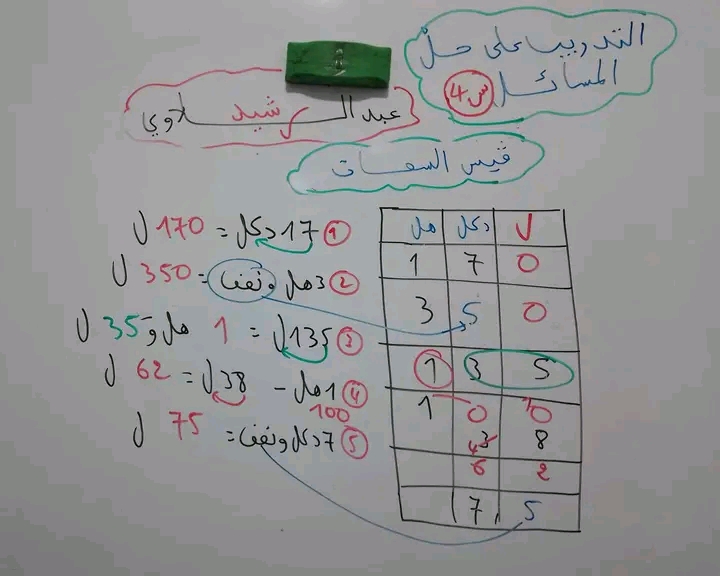 التدريب على حلّ
المسائل س4
عبد الرشيد لاوي
قيس السعات
① 17 دكل = 170 ل
② 3 هل ونصف = 350 ل
③ 135 ل = 1 هل و 35 ل
④ 1 هل - 38 ل = 62 ل
100
⑤ 7 دكل ونصف = 75 ل
هل دكل ل
1 7 0
3 5 0
1 3 5
1 0 10
3 8
6 2
7 5